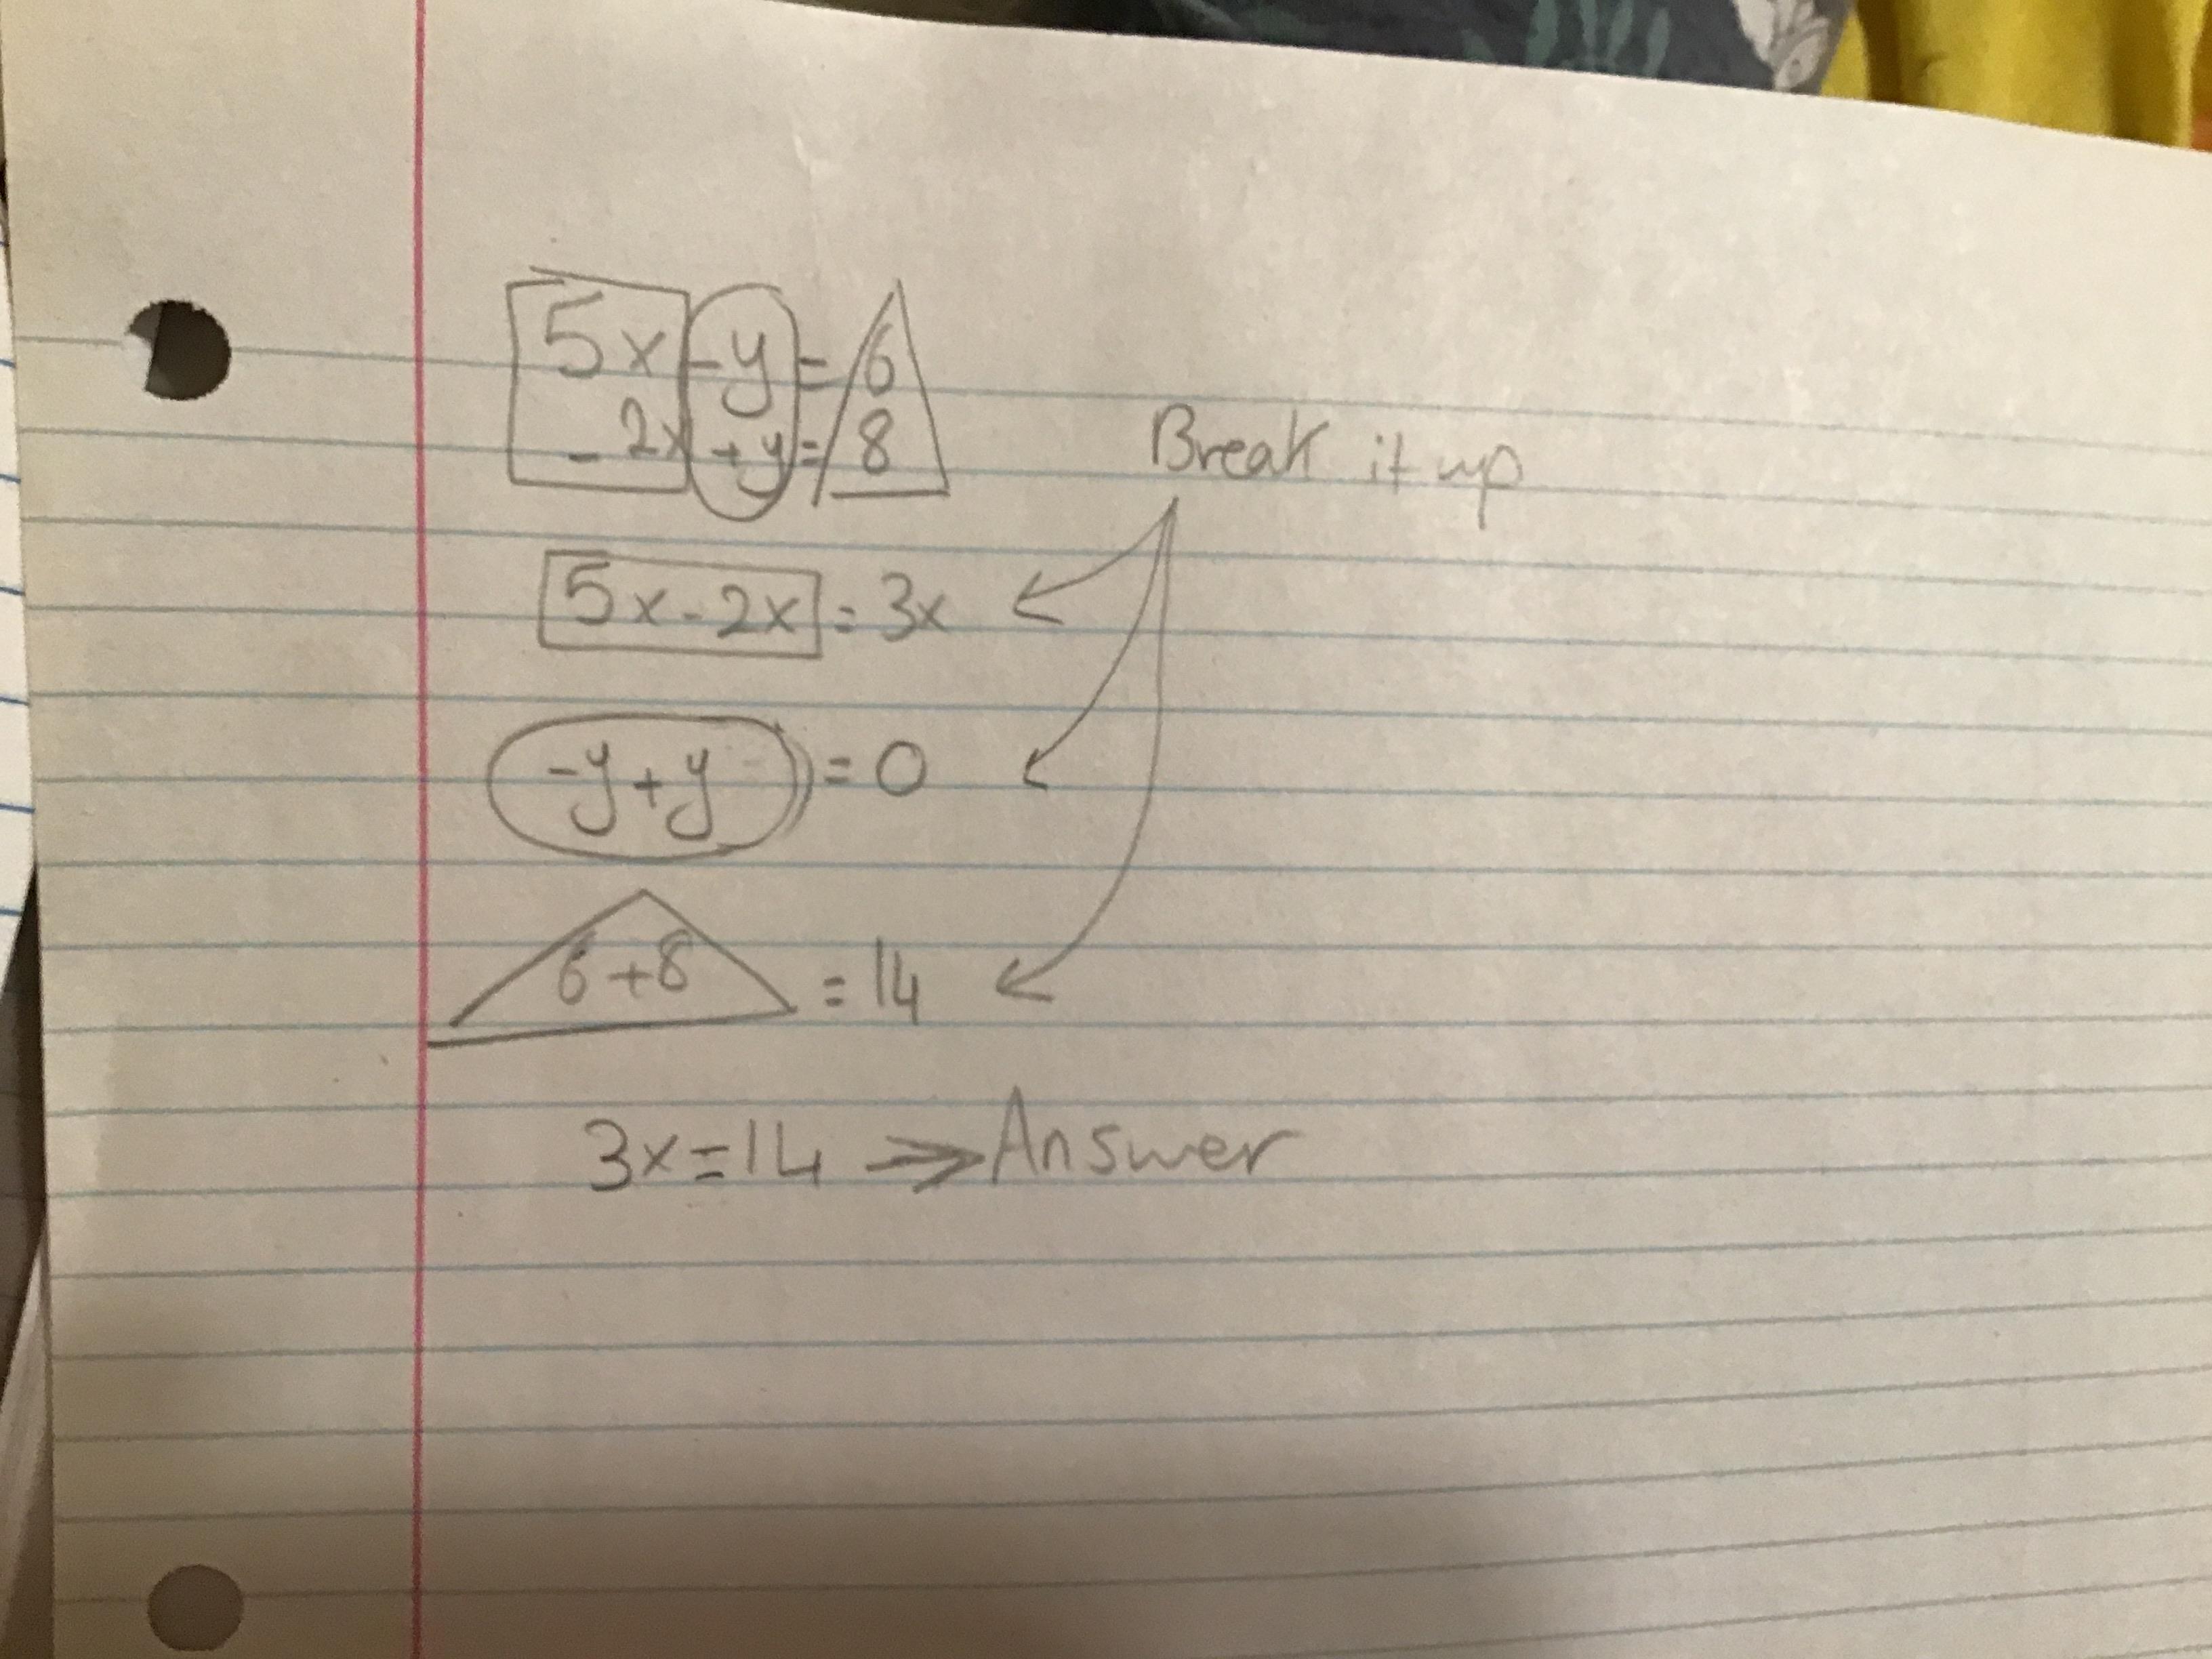 5x-y=6
- 2x+y=8
Break it up
5x-2x=3x
-y+y=0
6+8=14
3x=14 ⇒ Answer